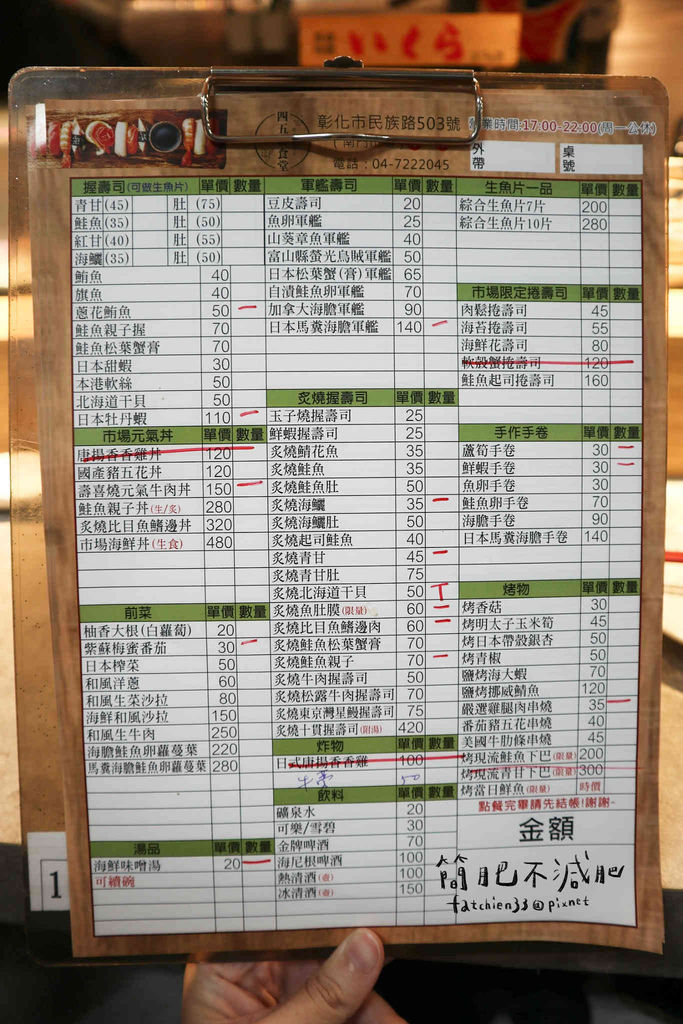 いくら
四五 食堂
彰化市民族路503號
營業時間:17:00-22:00(周一公休)
(南門
電話：04-7222045
外帶
桌號
握壽司(可做生魚片) 單價 數量
青甘(45) 肚 (75)
鮭魚(35) 肚 (50)
紅甘(40) 肚 (55)
海鱺(35) 肚 (50)
鮪魚 40
旗魚 40
蔥花鮪魚 50
鮭魚親子握 70
鮭魚松葉蟹膏 70
日本甜蝦 30
本港軟絲 50
北海道干貝 50
日本牡丹蝦 110
市場元氣丼 單價 數量
唐揚香香雞丼 120
國產豬五花丼 120
壽喜燒元氣牛肉丼 150
鮭魚親子丼(生/炙) 280
炙燒比目魚鰭邊丼 320
市場海鮮丼(生食) 480
前菜 單價 數量
柚香大根(白蘿蔔) 20
紫蘇梅蜜番茄 30
日本榨菜 50
和風洋蔥 60
和風生菜沙拉 80
海鮮和風沙拉 150
和風生牛肉 250
海膽鮭魚卵蘿蔓葉 220
馬糞海膽鮭魚卵蘿蔓葉 280
湯品 單價 數量
海鮮味噌湯 20
可續碗
1
軍艦壽司 單價 數量
豆皮壽司 20
魚卵軍艦 25
山葵章魚軍艦 40
富山縣螢光烏賊軍艦 50
日本松葉蟹(膏)軍艦 65
自漬鮭魚卵軍艦 70
加拿大海膽軍艦 90
日本馬糞海膽軍艦 140
炙燒握壽司 單價 數量
玉子燒握壽司 25
鮮蝦握壽司 25
炙燒鯖花魚 35
炙燒鮭魚 35
炙燒鮭魚肚 50
炙燒海鱺 35
炙燒海鱺肚 50
炙燒起司鮭魚 40
炙燒青甘 45
炙燒青甘肚 75
炙燒北海道干貝 50
炙燒魚肚膜(限量) 60
炙燒比目魚鰭邊肉 60
炙燒鮭魚松葉蟹膏 70
炙燒鮭魚親子 70
炙燒牛肉握壽司 50
炙燒松露牛肉握壽司 70
炙燒東京灣星鰻握壽司 75
炙燒十貫握壽司(附湯) 420
炸物 單價 數量
日式唐揚香香雞 100
牛蒡 50
飲料 單價 數量
礦泉水 20
可樂/雪碧 30
金牌啤酒 70
海尼根啤酒 100
熱清酒(壺) 100
冰清酒(壺) 150
生魚片一品 單價 數量
綜合生魚片7片 200
綜合生魚片10片 280
市場限定捲壽司 單價 數量
肉鬆捲壽司 45
海苔捲壽司 55
海鮮花壽司 80
軟殼蟹捲壽司 120
鮭魚起司捲壽司 160
手作手卷 單價 數量
蘆筍手卷 30
鮮蝦手卷 30
魚卵手卷 30
鮭魚卵手卷 70
海膽手卷 90
日本馬糞海膽手卷 140
烤物 單價 數量
烤香菇 30
烤明太子玉米筍 45
烤日本帶殼銀杏 50
烤青椒 50
鹽烤海大蝦 70
鹽烤挪威鯖魚 120
嚴選雞腿肉串燒 35
番茄豬五花串燒 40
美國牛肋條串燒 45
烤現流鮭魚下巴(限量) 200
烤現流青甘下巴(限量) 300
烤當日鮮魚(限量) 時價
點餐完畢請先結帳!謝謝~
金額
簡肥不減肥
fatchien33@pixnet